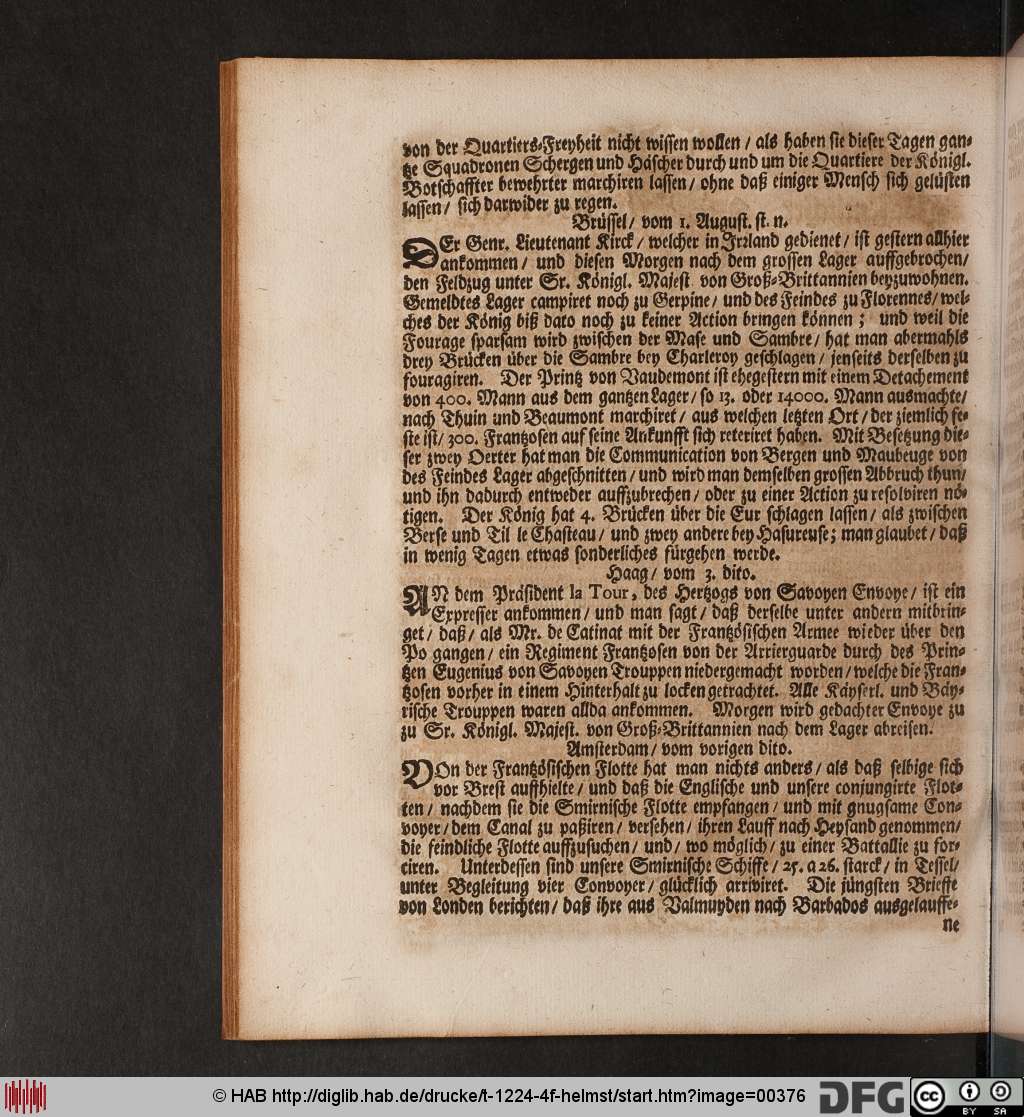 von der Quartiers-Freyheit nicht wissen wollen / als haben sie dieser Tagen gan-
tze Squadronen Schergen und Häscher durch und um die Quartiere der Königl.
Botschaffter bewehrter marchiren lassen / ohne daß einiger Mensch sich gelüsten
lassen / sich darwider zu regen.
Brüssel / vom 1. August. st. n.
DEr Genr. Lieutenant Kirck / welcher in Irrland gedienet / ist gestern allhier
ankommen / und diesen Morgen nach dem grossen Lager auffgebrochen /
den Feldzug unter Sr. Königl. Majest von Groß-Brittannien beyzuwohnen.
Gemeldtes Lager campiret noch zu Gerpine / und des Feindes zu Florennes / wel-
ches der König biß dato noch zu keiner Action bringen können ; und weil die
Fourage sparsam wird zwischen der Mase und Sambre / hat man abermahls
drey Brücken über die Sambre bey Charleroy geschlagen / jenseits derselben zu
fouragiren. Der Printz von Vaudemont ist ehegestern mit einem Detachement
von 400. Mann aus dem gantzen Lager / so 13. oder 14000. Mann ausmachte /
nach Thuin und Beaumont marchiret / aus welchen letzten Ort / der ziemlich fe-
ste ist / 300. Frantzosen auf seine Ankunfft sich reteriret haben. Mit Besetzung die-
ser zwey Oerter hat man die Communication von Bergen und Maubeuge von
des Feindes Lager abgeschnitten / und wird man demselben grossen Abbruch thun /
und ihn dadurch entweder auffzubrechen / oder zu einer Action zu resolviren nö-
tigen. Der König hat 4. Brücken über die Eur schlagen lassen / als zwischen
Berse und Til le Chasteau / und zwey andere bey Hasureuse ; man glaubet / daß
in wenig Tagen etwas sonderliches fürgehen werde.
Haag / vom 3. dito.
AN dem Präsident la Tour, des Hertzogs von Savoyen Envoye / ist ein
Expresser ankommen / und man sagt / daß derselbe unter andern mitbrin-
get / daß / als Mr. de Catinat mit der Frantzösischen Armee wieder über den
Po gangen / ein Regiment Frantzosen von der Arrierguarde durch des Prin-
tzen Eugenius von Savoyen Trouppen niedergemacht worden / welche die Fran-
tzosen vorher in einem Hinterhalt zu locken getrachtet. Alle Käyserl. und Bäy-
rische Trouppen waren allda ankommen. Morgen wird gedachter Envoye zu
zu Sr. Königl. Majest. von Groß-Brittannien nach dem Lager abreisen.
Amsterdam / vom vorigen dito.
VOn der Frantzösischen Flotte hat man nichts anders / als daß selbige sich
vor Brest auffhielte / und daß die Englische und unsere conjungirte Flot-
ten / nachdem sie die Smirnische Flotte empfangen / und mit gnugsame Con-
voyer / dem Canal zu paßiren / versehen / ihren Lauff nach Heysand genommen /
die feindliche Flotte auffzusuchen / und / wo möglich / zu einer Battallie zu for-
ciren. Unterdessen sind unsere Smirnische Schiffe / 25. a 26. starck / in Tessel /
unter Begleitung vier Convoyer / glücklich arriviret. Die jüngsten Brieffe
von Londen berichten / daß ihre aus Valmuyden nach Barbados ausgelauffe-
ne
© HAB http://diglib.hab.de/drucke/t-1224-4f-helmst/start.htm?image=00376
DFG
cc BY SA